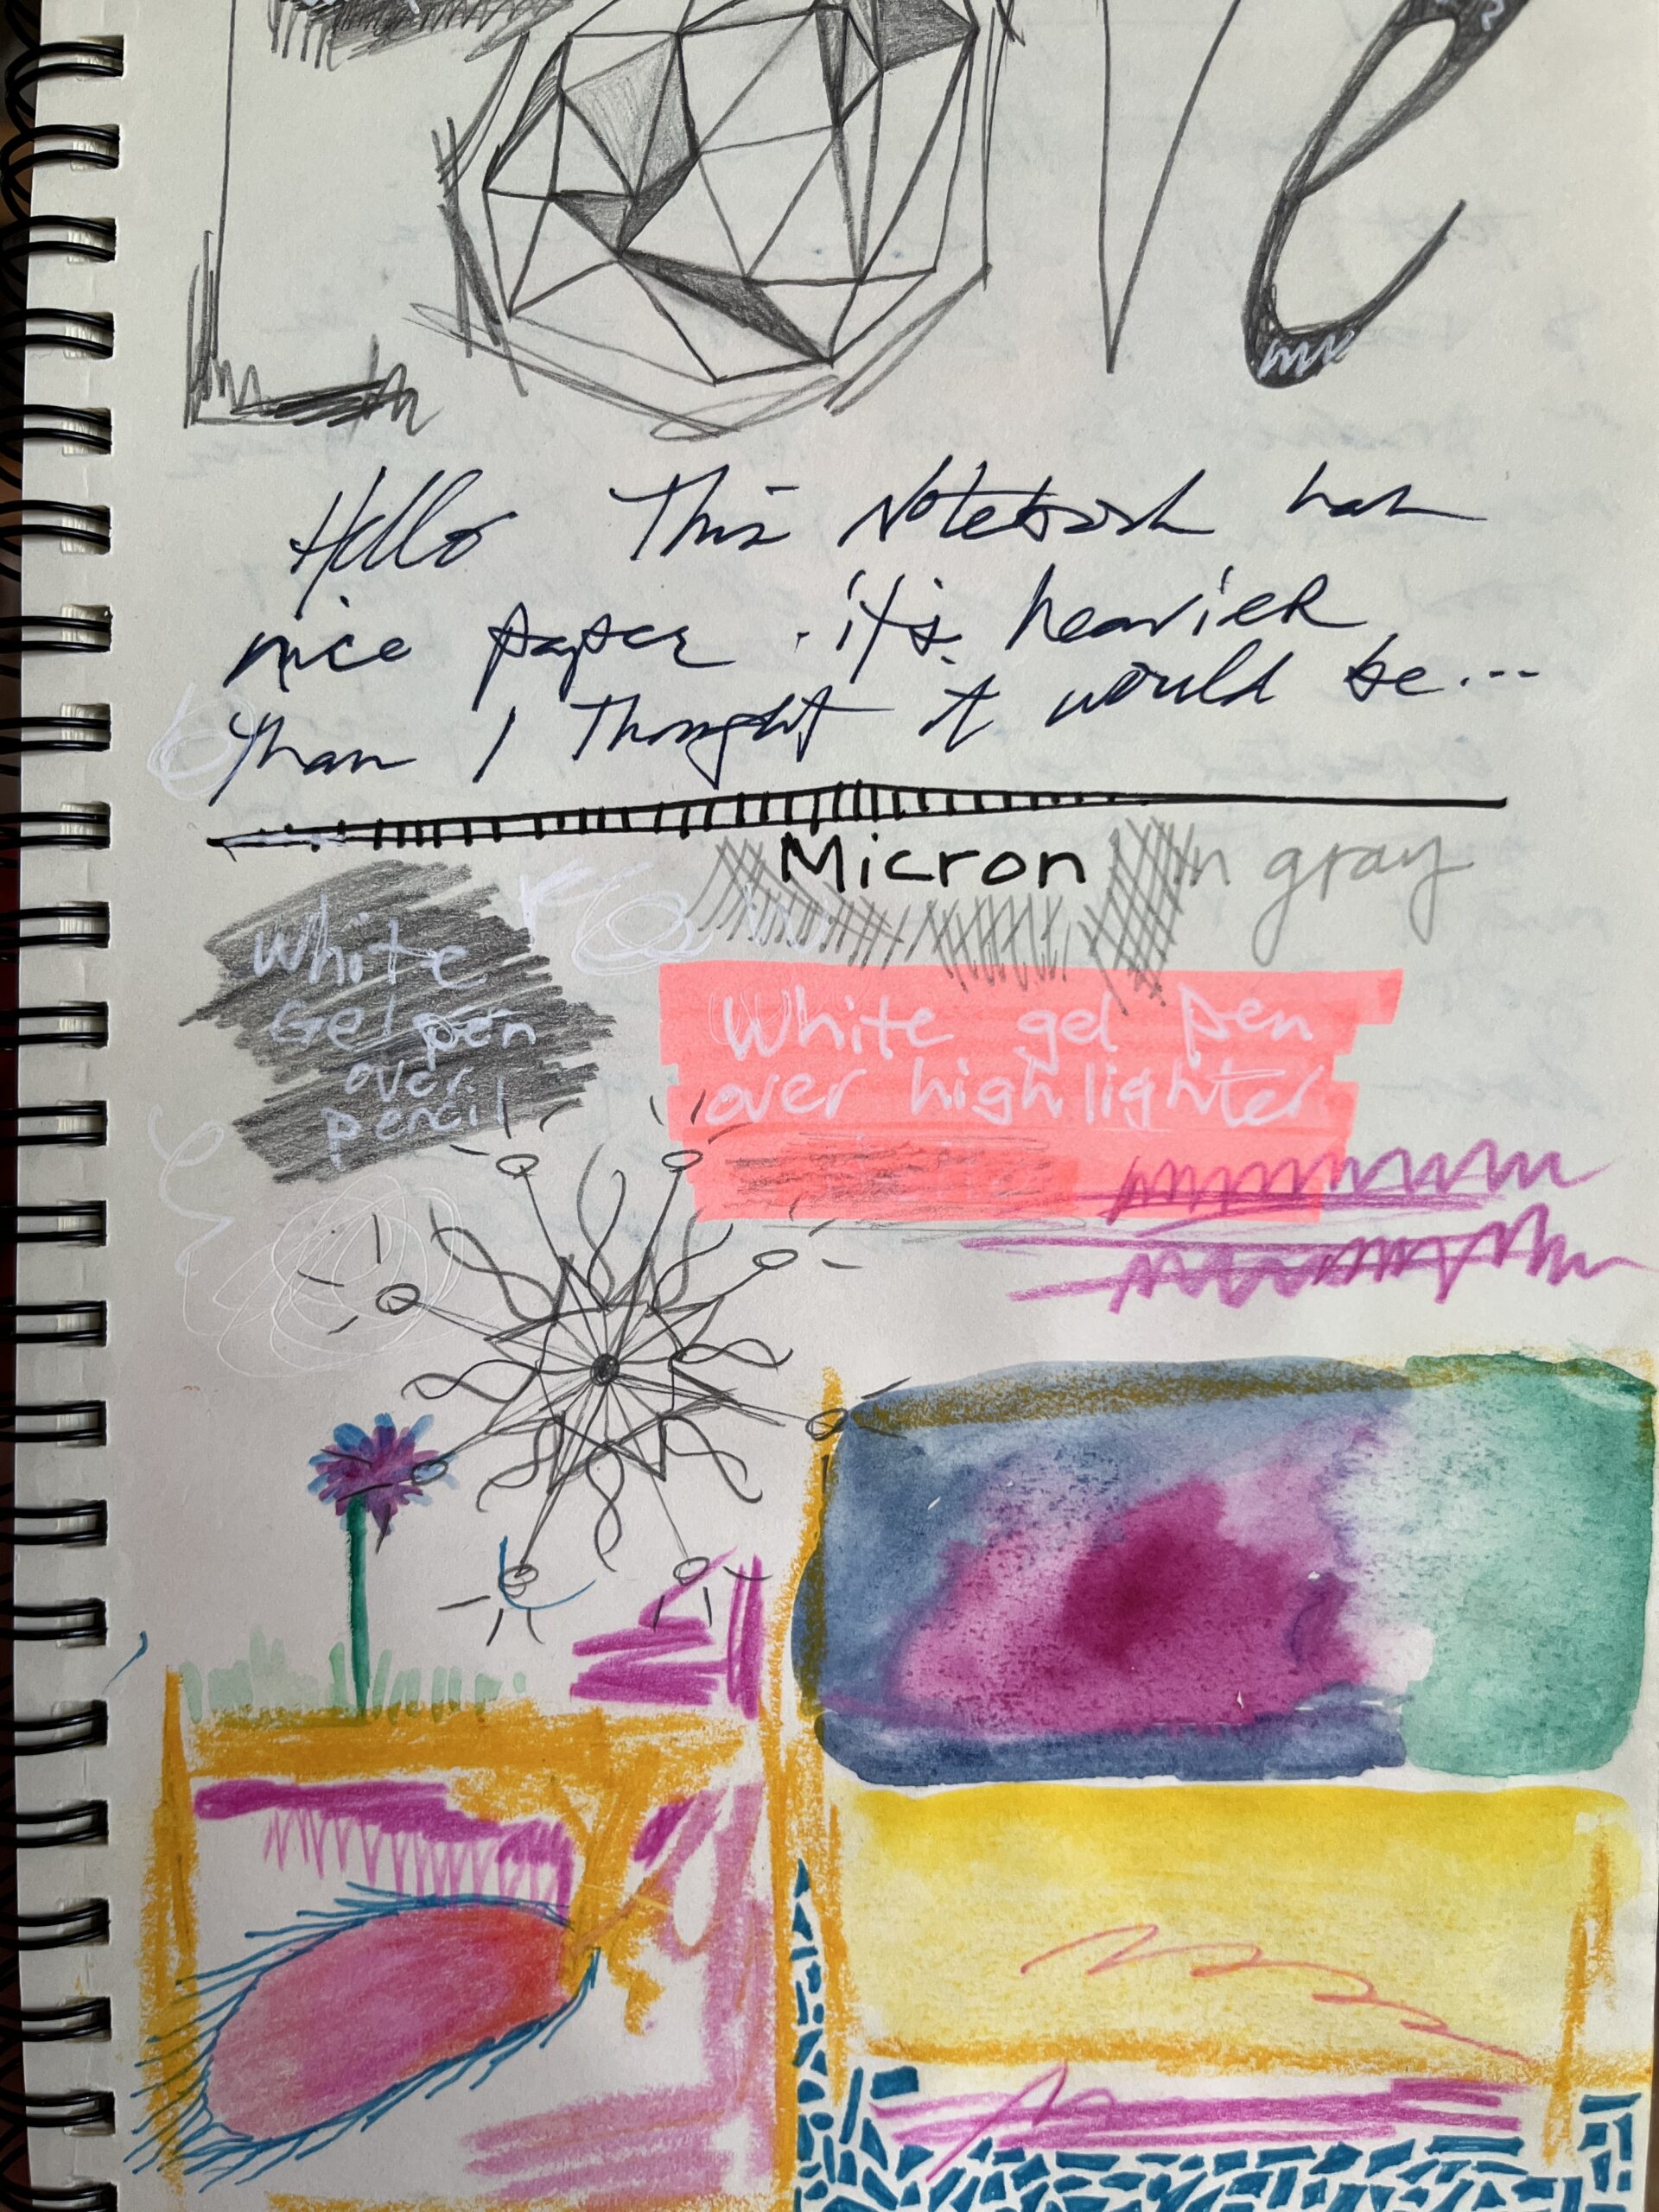 Love
Hello This Notebook has
nice paper. it's heavier
than I thought it would be...
Micron in gray
White
Gel pen
over
pencil
White gel pen
over highlighter